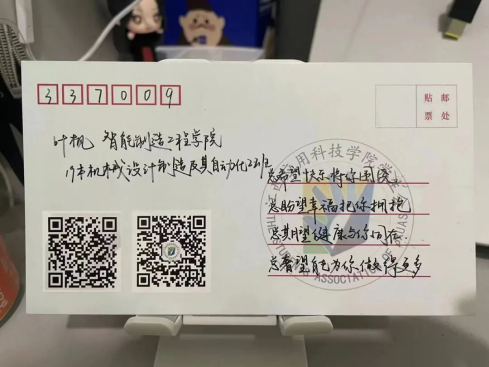 337009
贴 邮
票 处
叶帆 智能制造工程学院
19本机械设计制造及其自动化2班
总希望快乐将你围绕
总盼望幸福把你拥抱
总期望健康与你同在
总奢望能为你做得更多
用科技学院学生
ASSOCIATION